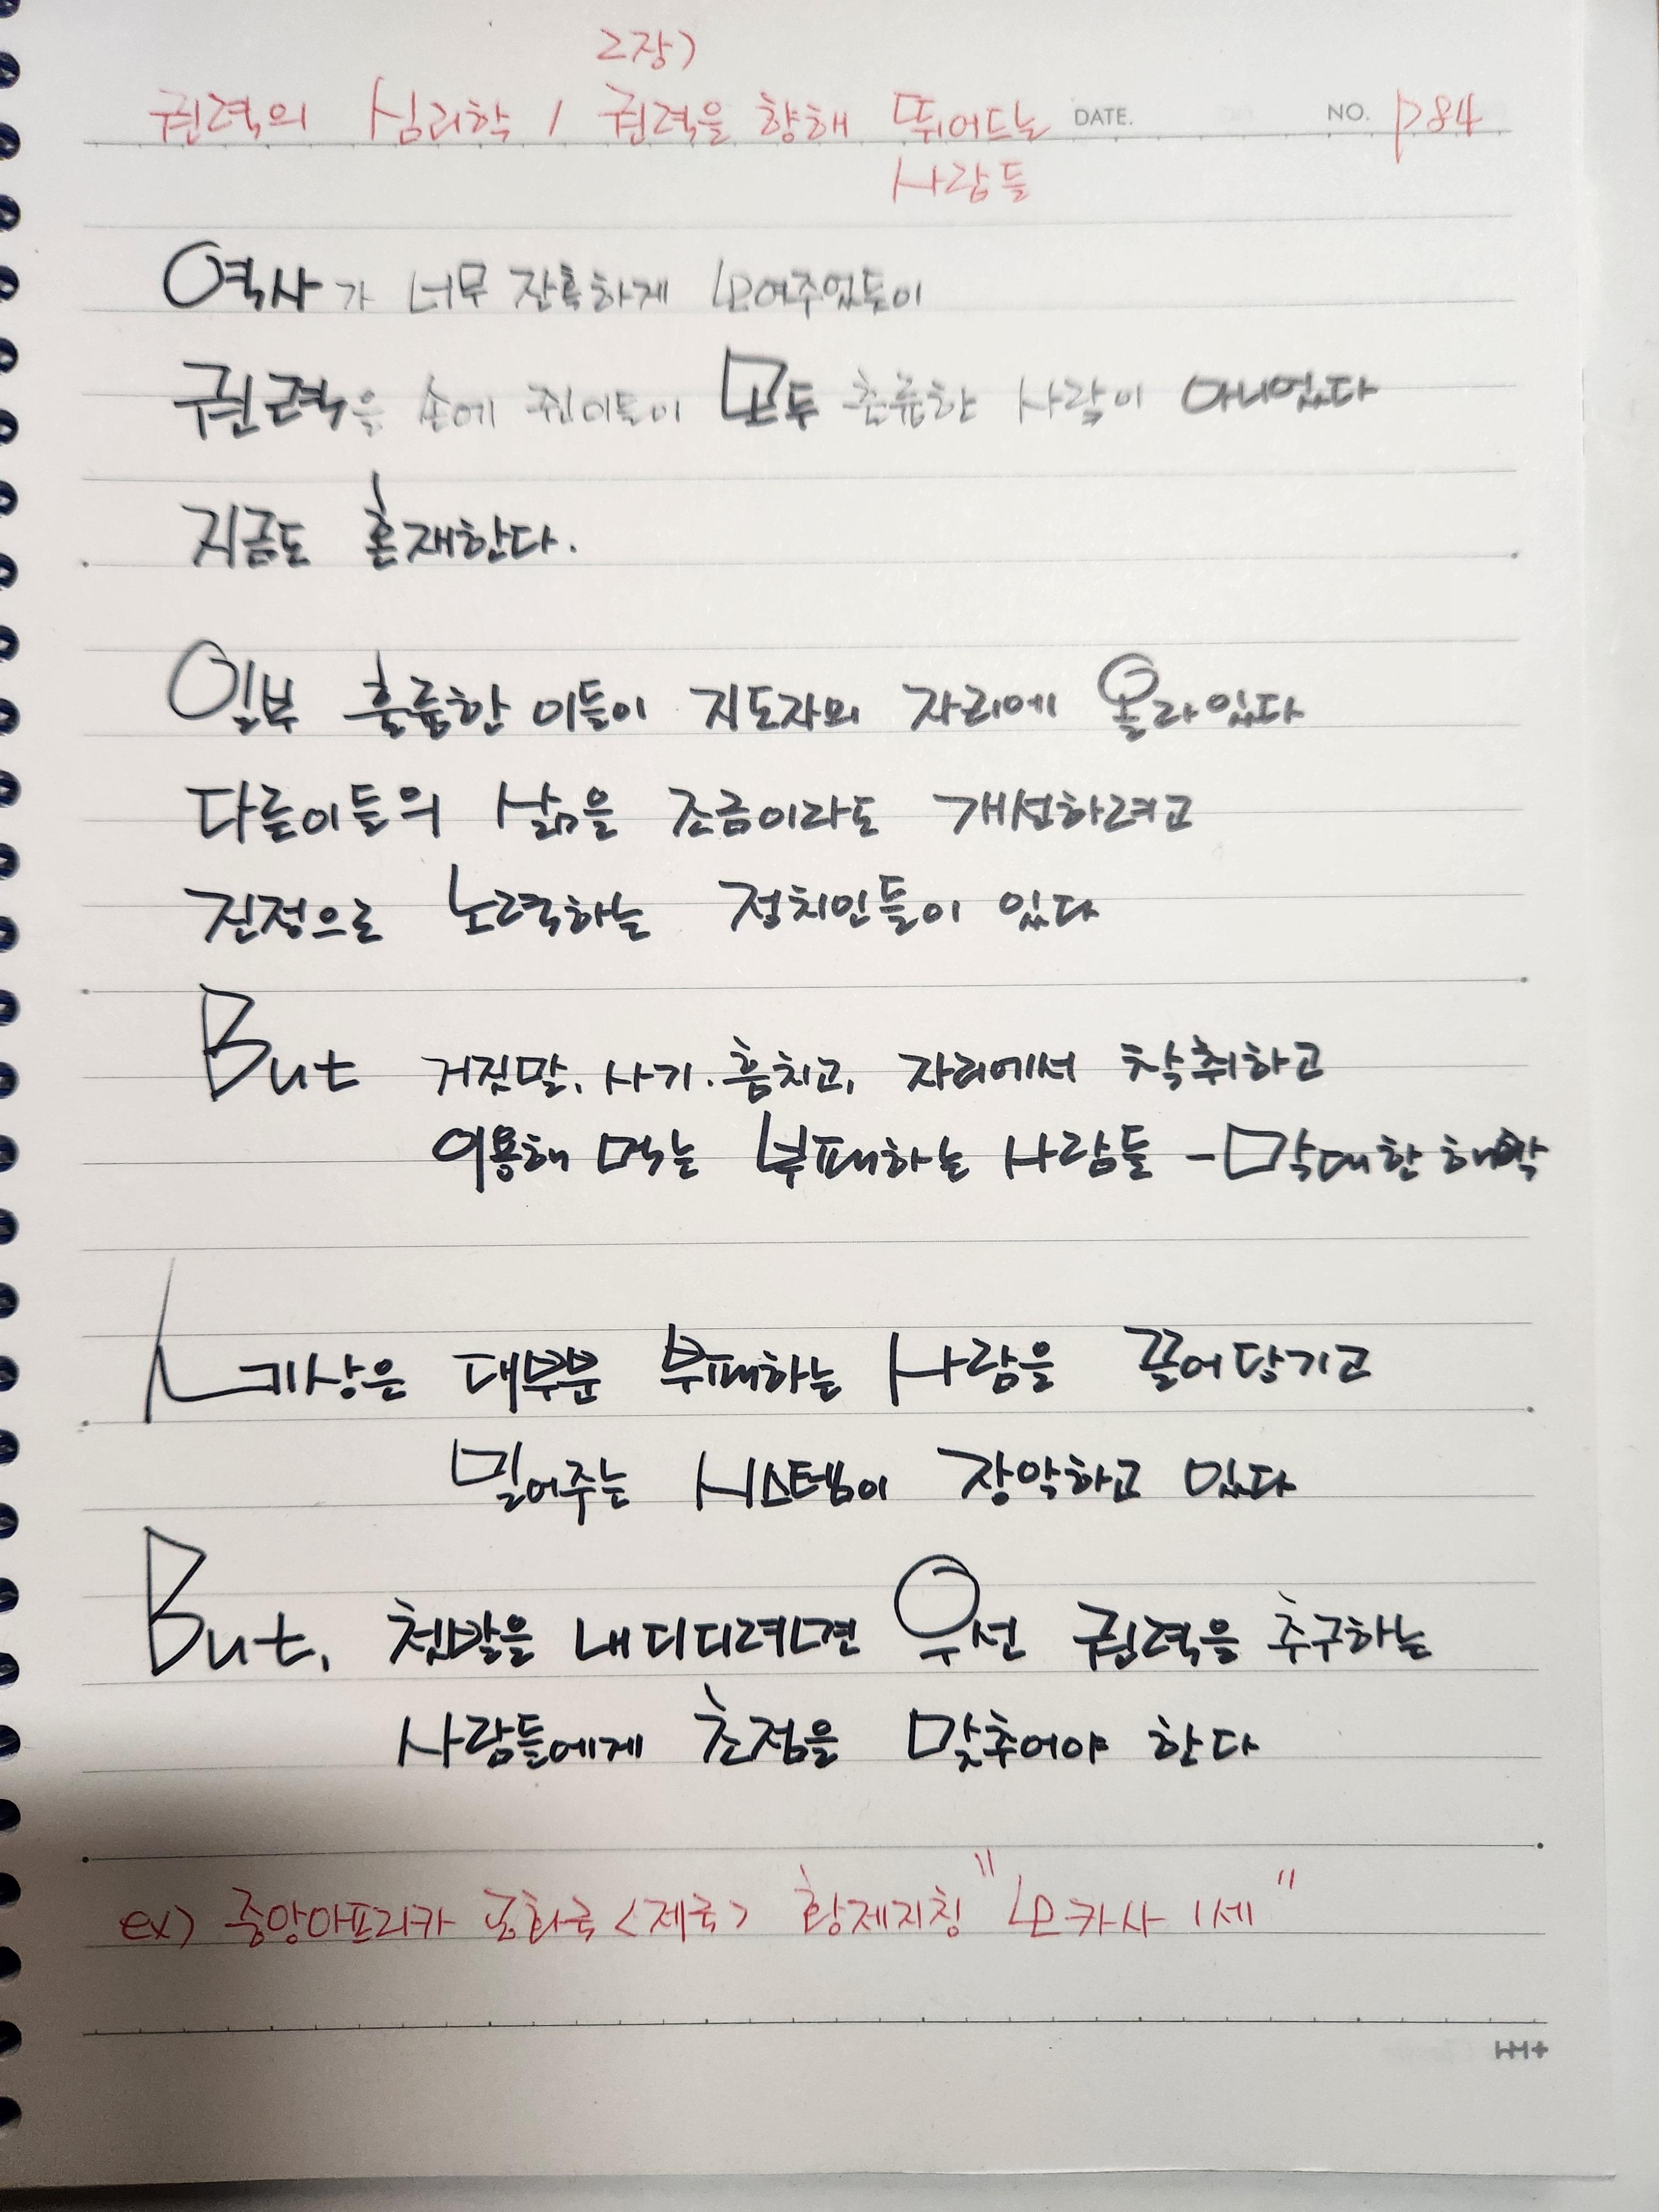 2장)
권력의 심리학 / 권력을 향해 뛰어드는 DATE. NO. P84
사람들
역사가 너무 잔혹하게 보여주었듯이
권력을 손에 쥔이들이 모두 훌륭한 사람이 아니었다
지금도 혼재한다.
일부 훌륭한 이들이 지도자의 자리에 올라있다
다른이들의 삶을 조금이라도 개선하려고
진정으로 노력하는 정치인들이 있다
But 거짓말, 사기. 훔치고, 자리에서 착취하고
이용해 먹는 부패하는 사람들 - 막대한 해악
세상은 대부분 부패하는 사람을 끌어당기고
밀어주는 시스템이 장악하고 있다
But, 첫발을 내디디려면 우선 권력을 추구하는
사람들에게 초점을 맞추어야 한다
ex) 중앙아프리카 공화국 <제국> 황제지칭 "보카사 1세"